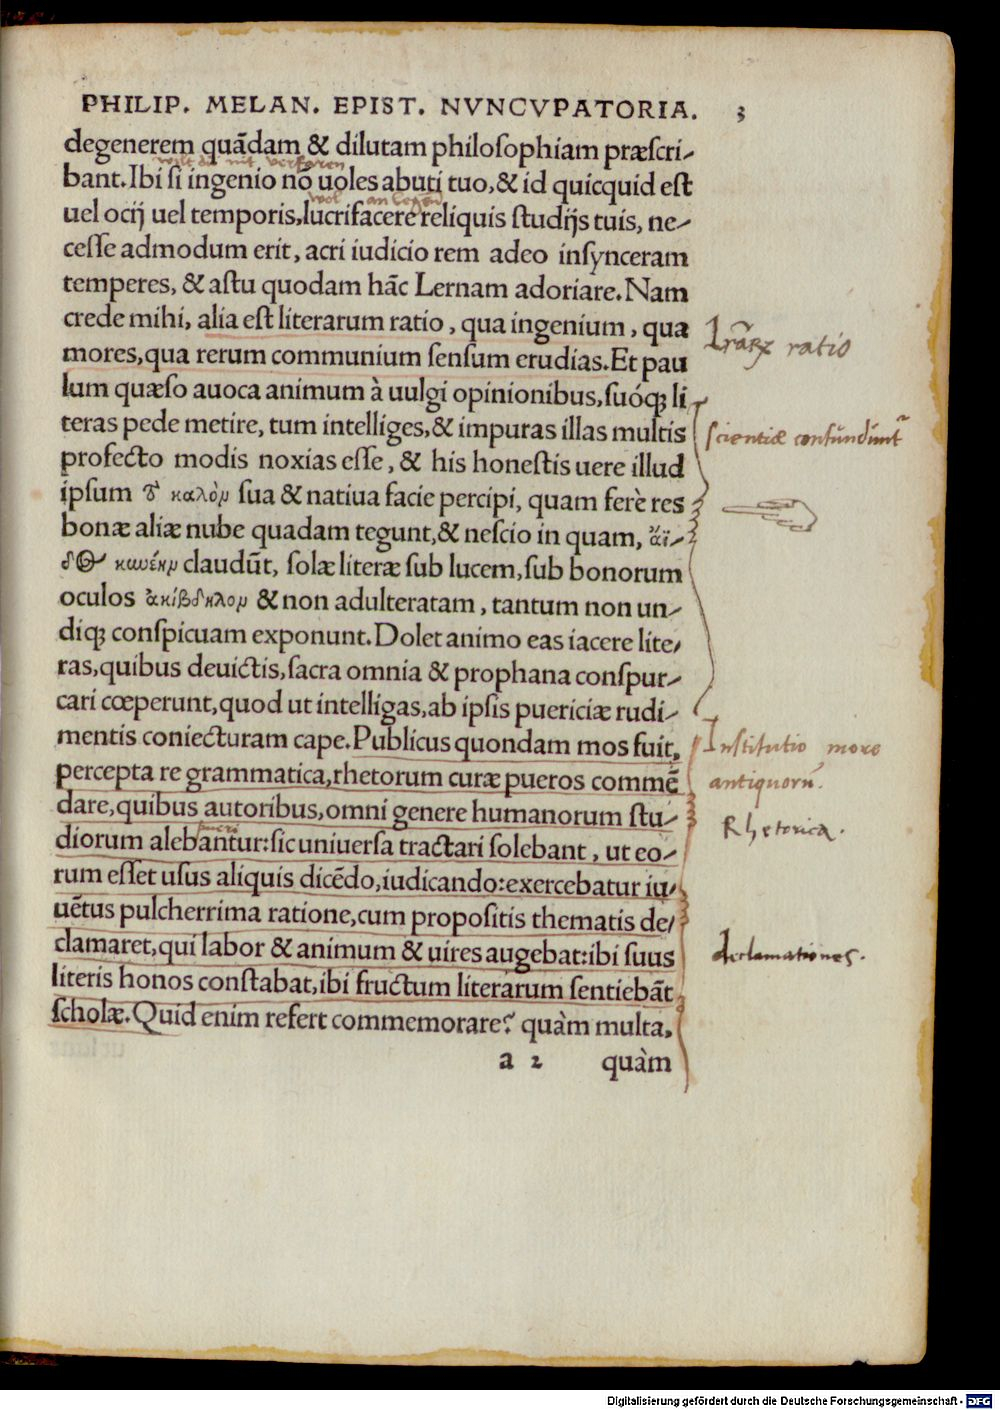 PHILIP. MELAN. EPIST. NVNCVPATORIA. 3
degenerem quãdam & dilutam philoſophiam præſcri-
wilt du nit verfaren
bant. Ibi ſi ingenio nõ uoles abuti tuo, & id quicquid eſt
wol anlegen
uel ocij uel temporis, lucrifacere reliquis ſtudijs tuis, ne-
ceſſe admodum erit, acri iudicio rem adeo inſynceram
temperes, & aſtu quodam hãc Lernam adoriare. Nam
crede mihi, alia eſt literarum ratio, qua ingenium, qua
lrãrꝝ ratio
mores, qua rerum communium ſenſum erudias. Et pau
lum quæſo auoca animum à uulgi opinionibus, ſuóqꝫ li
teras pede metire, tum intelliges, & impuras illas multis
ſcientiæ confundunt̃
profecto modis noxias eſſe, & his honeſtis uere illud
ipſum τὸ καλὸν ſua & natiua facie percipi, quam ferè res
bonæ aliæ nube quadam tegunt, & neſcio in quam, ἄϊ-
δος κυνέην claudũt, ſolæ literæ ſub lucem, ſub bonorum
oculos ἀκίβδηλον & non adulteratam, tantum non un-
diqꝫ conſpicuam exponunt. Dolet animo eas iacere lite-
ras, quibus deuictis, ſacra omnia & prophana conſpur-
cari cœperunt, quod ut intelligas, ab ipſis puericiæ rudi-
mentis coniecturam cape. Publicus quondam mos fuit,
Inſtitutio more
antiquorũ.
percepta re grammatica, rhetorum curæ pueros commẽ
dare, quibus autoribus, omni genere humanorum ſtu-
Rhetorica.
pueri
diorum alebantur: ſic uniuerſa tractari ſolebant, ut eo-
rum eſſet uſus aliquis dicẽdo, iudicando: exercebatur iu-
uẽtus pulcherrima ratione, cum propoſitis thematis de-
clamaret, qui labor & animum & uires augebat: ibi ſuus
declamationes.
literis honos conſtabat, ibi fructum literarum ſentiebãt
ſcholæ. Quid enim refert commemorare? quàm multa,
a 2 quàm
Digitalisierung gefördert durch die Deutsche Forschungsgemeinschaft - DFG